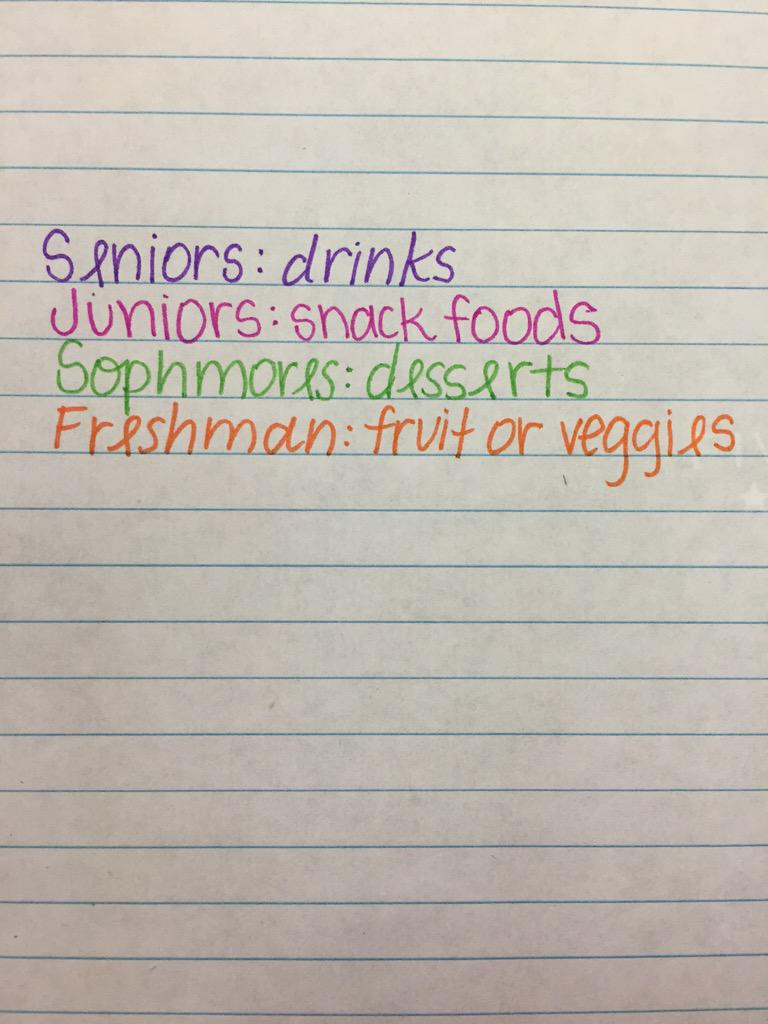 Seniors: drinks
Juniors: snack foods
Sophmores: desserts
Freshman: fruit or veggies